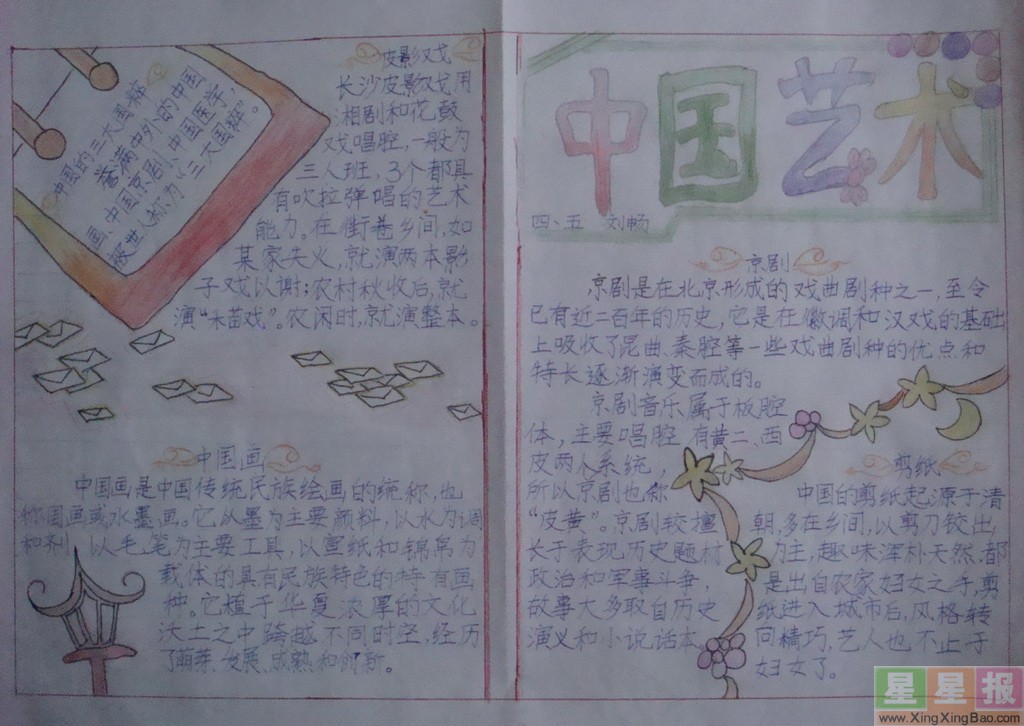 中国的三大国粹
誉满中外的中国
画、中国京剧、中国医学，
被世人称为“三大国粹”。
皮影戏
长沙皮影戏用
湘剧和花鼓
戏唱腔，一般为
三人班，3个都具
有吹拉弹唱的艺术
能力。在街巷乡间，如
某家失火，就演两本影
子戏以谢；农村秋收后，就
演“禾苗戏”。农闲时，京尤演整本。
中国画
中国画是中国传统民族绘画的统称，也
称国画或水墨画。它以墨为主要颜料，以水为调
和剂，以毛笔为主要工具，以宣纸和锦帛为
载体的具有民族特色的特有画
种。它植于华夏浓厚的文化
沃土之中跨越不同时空，经历
了萌芽、发展、成熟和创新。
中国艺术
四、五 刘畅
京剧
京剧是在北京形成的戏曲剧种之一，至今
已有近二百年的历史，它是在徽调和汉戏的基础
上吸收了昆曲、秦腔等一些戏曲剧种的优点和
特长逐渐演变而成的。
京剧音乐属于板腔
体，主要唱腔有黄二、西
皮两个系统，
所以京剧也称
“皮黄”。京剧较擅
长于表现历史题材
政治和军事斗争，
故事大多取自历史
演义和小说话本。
剪纸
中国的剪纸起源于清
朝，多在乡间，以剪刀铰出
为主，趣味浑朴天然，都
是出自农家妇女之手，剪
纸进入城市后，风格转
向精巧，艺人也不止于
妇女了。
星星报
www.XingXingBao.com